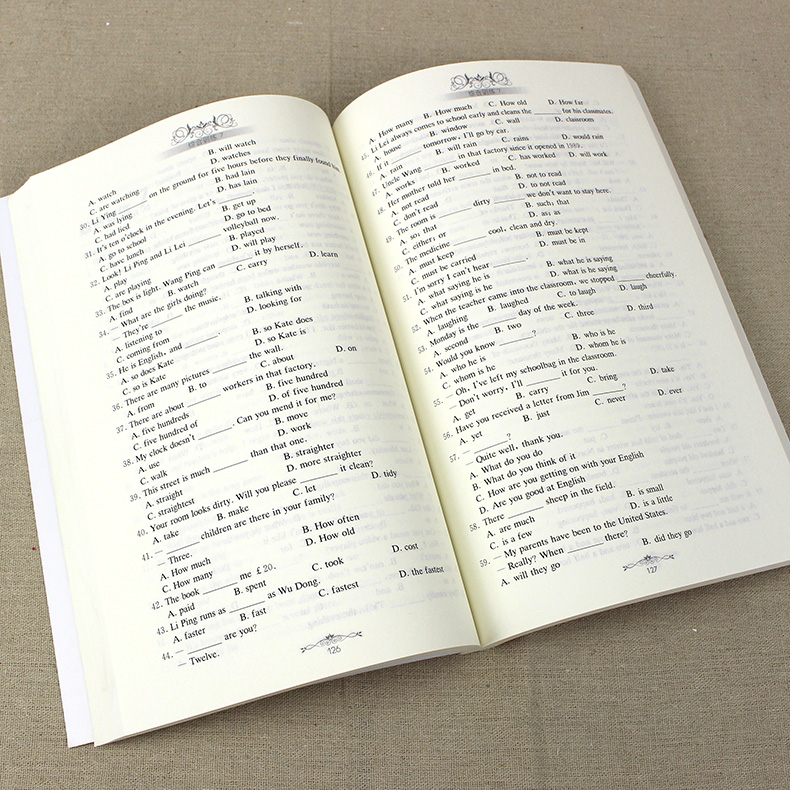 A. watch
B. will watch
C. are watching
D. watches
30. Li Ying ______ on the ground for five hours before they finally found him.
A. was lying
B. had lain
C. had lied
D. has lain
31. It's ten o'clock in the evening. Let's ______.
A. go to school
B. get up
C. have lunch
D. go to bed
32. Look! Li Ping and Li Lei ______ volleyball now.
A. play
B. played
C. are playing
D. will play
33. The box is light. Wang Ping can ______ it by herself.
A. find B. watch C. carry D. learn
34. — What are the girls doing?
— They're ______ the music.
A. listening to
B. talking with
C. coming from
D. looking for
35. He is English, and ______.
A. so does Kate
B. so Kate does
C. so is Kate
D. so Kate is
36. There are many pictures ______ the wall.
A. from B. to C. about D. on
37. There are about ______ workers in that factory.
A. five hundreds
B. five hundred
C. five hundred of
D. of five hundred
38. My clock doesn't ______. Can you mend it for me?
A. use
B. move
C. walk
D. work
39. This street is much ______ than that one.
A. straight
B. straighter
C. straightest
D. more straighter
40. Your room looks dirty. Will you please ______ it clean?
A. take B. make C. let D. tidy
41. — ______ children are there in your family?
— Three.
A. How much
B. How often
C. How many
D. How old
42. The book ______ me £20.
A. paid B. spent C. took D. cost
43. Li Ping runs as ______ as Wu Dong.
A. faster B. fast C. fastest D. the fastest
44. — ______ are you?
— Twelve.
126
A. How many B. How much C. How old D. How far
45. Li Lei always comes to school early and cleans the ______ for his classmates.
A. house B. window C. wall D. classroom
46. If it ______ tomorrow, I'll go by car.
A. rain B. will rain C. rains D. would rain
47. Uncle Wang ______ in that factory since it opened in 1989.
A. works B. worked C. has worked D. will work
48. Her mother told her ______ in bed.
A. not read
B. not to read
C. don't read
D. to not read
49. The room is ______ dirty ______ we don't want to stay here.
A. so; that
B. such; that
C. either; or
D. as; as
50. The medicine ______ cool, clean and dry.
A. must keep
B. must be kept
C. must be carried
D. must be in
51. I'm sorry I can't hear ______.
A. what saying he is
B. what he is saying
C. what saying is he
D. what is he saying
52. When the teacher came into the classroom, we stopped ______ cheerfully.
A. laughing B. laughed C. to laugh D. laugh
53. Monday is the ______ day of the week.
A. second B. two C. three D. third
54. Would you know ______?
A. who he is
B. who is he
C. whom is he
D. whom he is
55. — Oh, I've left my schoolbag in the classroom.
— Don't worry, I'll ______ it for you.
A. get B. carry C. bring D. take
56. Have you received a letter from Jim ______?
A. yet B. just C. never D. ever
57. — ______?
— Quite well, thank you.
A. What do you do
B. What do you think of it
C. How are you getting on with your English
D. Are you good at English
58. There ______ sheep in the field.
A. are much
B. is small
C. is a few
D. is a little
59. — My parents have been to the United States.
— Really? When ______ there?
A. will they go
B. did they go
127